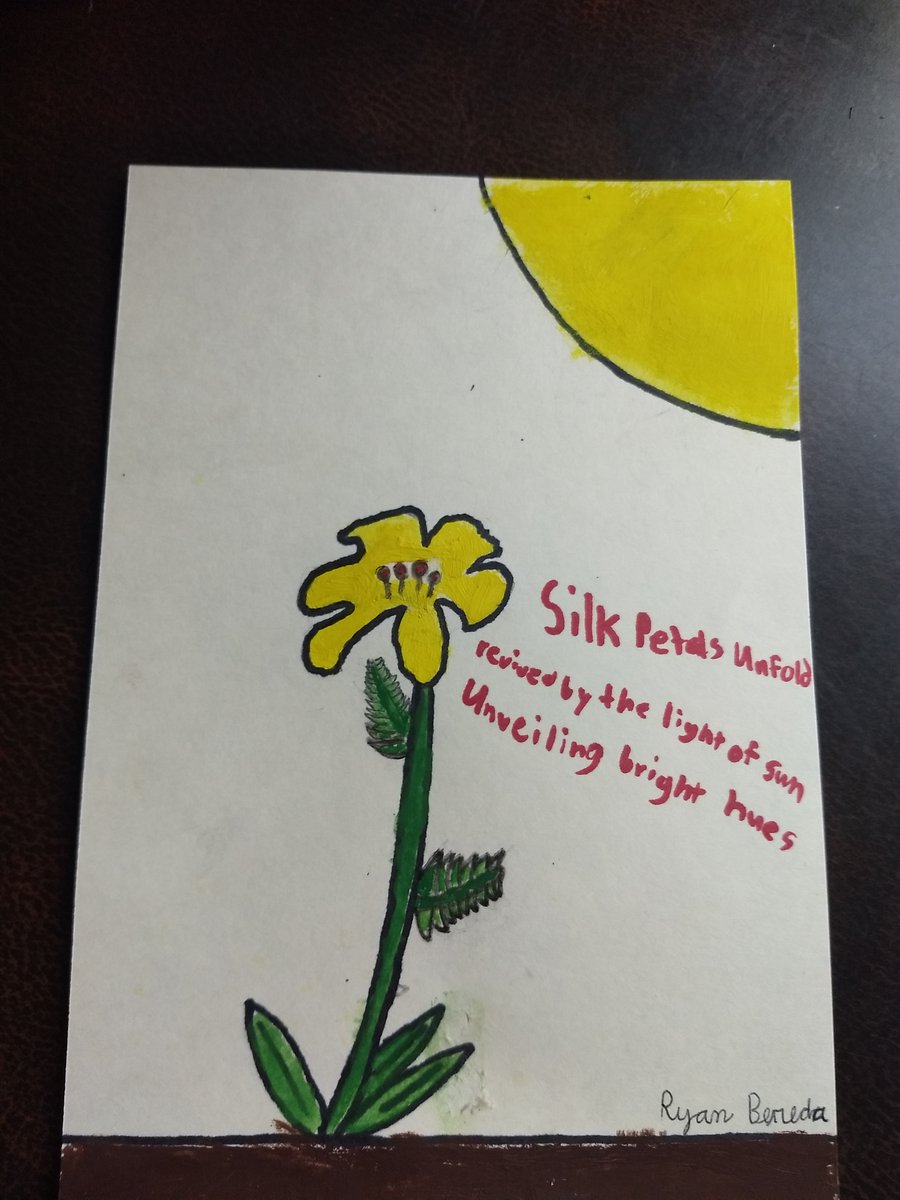 Silk Petals Unfold
revived by the light of sun
Unveiling bright hues
Ryan Bereda